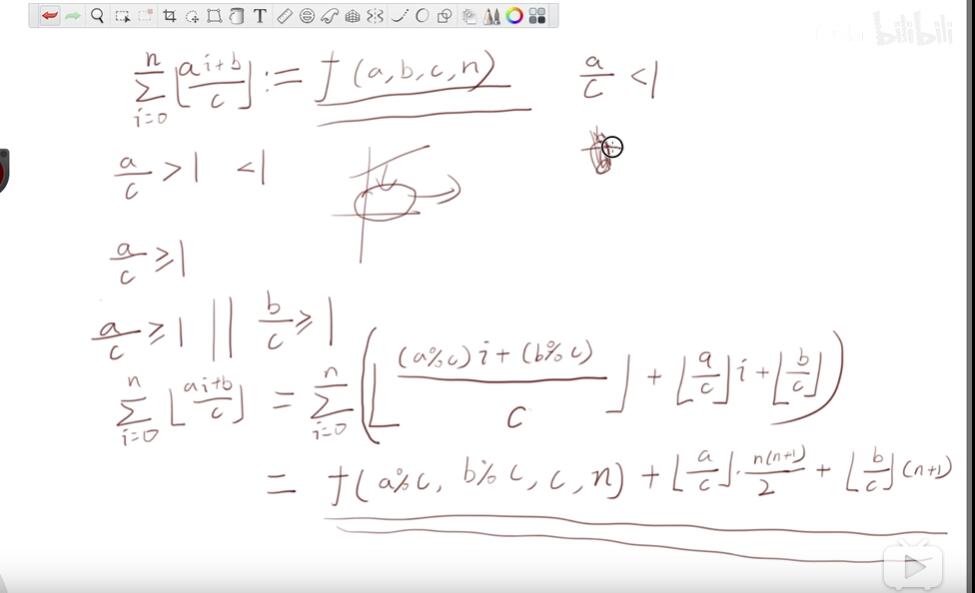 bilibili
\sum_{i=0}^{n} ⌊\frac{ai+b}{c}⌋ := f(a,b,c,n)
\frac{a}{c} < 1
\frac{a}{c} > 1 < 1
\frac{a}{c} ⩾ 1
\frac{a}{c} ⩾ 1 || \frac{b}{c} ⩾ 1
\sum_{i=0}^{n} ⌊\frac{ai+b}{c}⌋ = \sum_{i=0}^{n} (⌊\frac{(a%c)i+(b%c)}{c}⌋ + ⌊\frac{a}{c}⌋i + ⌊\frac{b}{c}⌋)
= f(a%c, b%c, c, n) + ⌊\frac{a}{c}⌋·\frac{n(n+1)}{2} + ⌊\frac{b}{c}⌋(n+1)